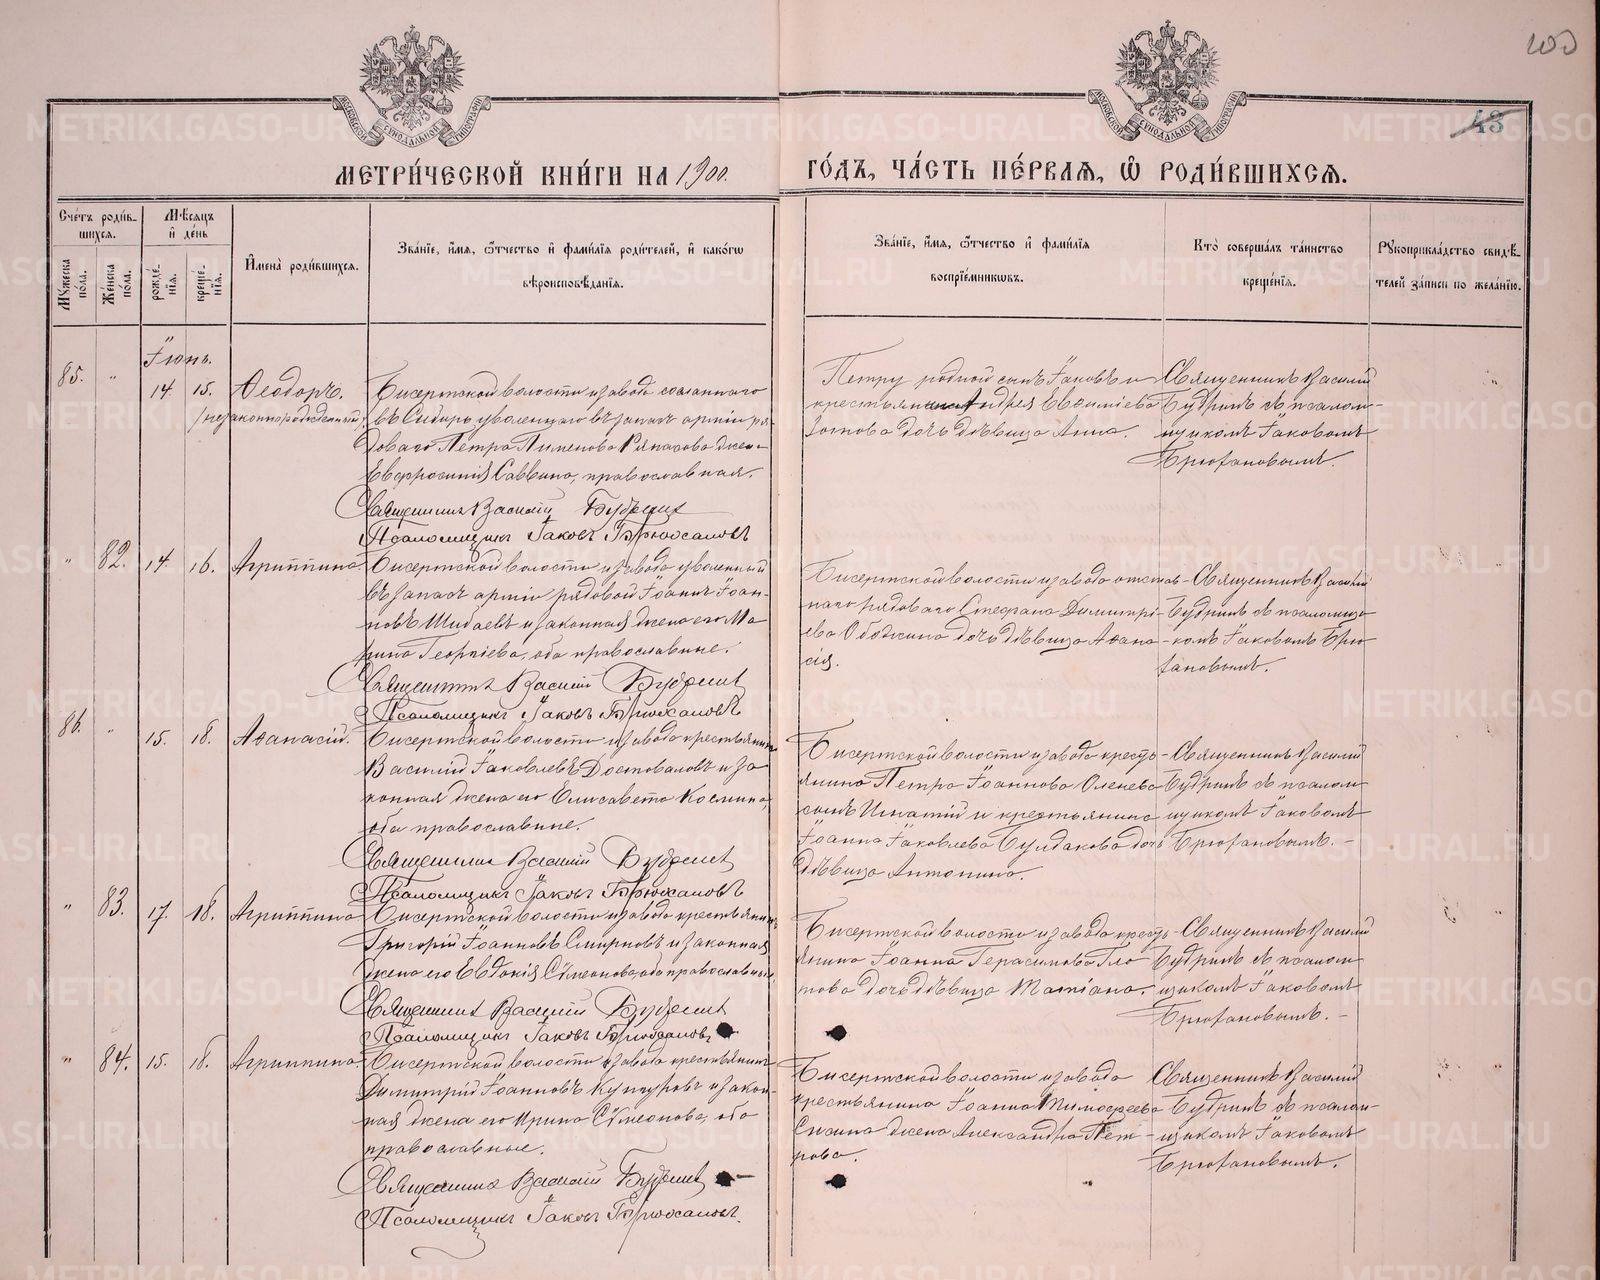 100
43
МЕТРИ́ЧЕСКОЙ КНИ́ГИ НА 1900. ГО́ДЪ, ЧА́СТЬ ПЕ́РВАѦ, Ѡ҆ РОДИ́ВШИХСѦ.
Сче́тъ роди́в-
шихсѧ.
Мꙋ́жеска по́ла.
Же́нска по́ла.
Мѣ́сяцъ
и҆ де́нь
рожде́-
нїѧ.
креще́-
нїѧ.
И҆мена̀ роди́вшихсѧ.
Зва́нїе, и҆́мѧ, ѻ҆́тчество и҆ фами́лїѧ роди́телей, и҆ како́гѡ
вѣроисповѣ́данїѧ.
Зва́нїе, и҆́мѧ, ѻ҆́тчество и҆ фами́лїѧ
воспрїе́мниковъ.
Кто̀ соверша́лъ та́инство
креще́нїѧ.
Рꙋкоприкла́дство свидѣ́-
телей за́писи по жела́нїю.
Іюнь.
85. " 14 15. Ѳеодоръ.
/незаконнорожденный/
Бисертской волости и завода сосланнаго
въ Сибирь уволеннаго въ запасъ арміи ря-
доваго Петра Пименова жена
Евфросинія Саввина, православная.
Священникъ Василій Будринъ
Псаломщикъ Іаковъ Брюхановъ
Петру родной сынъ Іаковъ и
крестьянина Андрея Евѳиміева
Зотова дочь дѣвица Анна.
Священникъ Василій
Будринъ съ псалом-
щикомъ Іаковомъ
Брюхановымъ.
" 82. 14 16. Агриппина.
Бисертской волости и завода уволенный
въ запасъ арміи рядовой Іоаннъ Іоан-
новъ Шилаевъ и законная жена его Ма-
рина Георгіева, оба православные.
Священникъ Василій Будринъ
Псаломщикъ Іаковъ Брюхановъ
Бисертской волости и завода отстав-
наго рядоваго Стефана Димитрі-
ева Обожина дочь дѣвица Аѳана-
сія.
Священникъ Василій
Будринъ съ псаломщи-
комъ Іаковомъ Брю-
хановымъ.
86. " 15. 18. Аѳанасій.
Бисертской волости и завода крестьянинъ
Василій Іаковлевъ Достоваловъ и за-
конная жена его Елисавета Космина,
оба православные.
Священникъ Василій Будринъ
Псаломщикъ Іаковъ Брюхановъ
Бисертской волости и завода кресть-
янина Петра Іоаннова Оленева
сынъ Игнатій и крестьянина
Іоанна Іаковлева Булдакова дочь
дѣвица Антонина.
Священникъ Василій
Будринъ съ псалом-
щикомъ Іаковомъ
Брюхановымъ.
" 83. 17. 18. Агриппина
Бисертской волости и завода крестьянинъ
Григорій Іоанновъ Смирновъ и законная
жена его Евдокія Сѵмеонова, оба православные
Священникъ Василій Будринъ
Псаломщикъ Іаковъ Брюхановъ
Бисертской волости и завода кресть-
янина Іоанна Герасимова
това дочь дѣвица Татіана.
Священникъ Василій
Будринъ съ псалом-
щикомъ Іаковомъ
Брюхановымъ.
" 84. 15. 18. Агриппина.
Бисертской волости и завода крестьянинъ
Димитрій Іоанновъ и закон-
ная жена его Ирина Сѵмеонова, оба
православные.
Священникъ Василій Будринъ
Псаломщикъ Іаковъ Брюхановъ.
Бисертской волости и завода
крестьянина Іоанна Тимоѳеева
Сисина жена Александра Пет-
рова.
Священникъ Василій
Будринъ съ псалом-
щикомъ Іаковомъ
Брюхановымъ.
METRIKI.GASO-URAL.RU